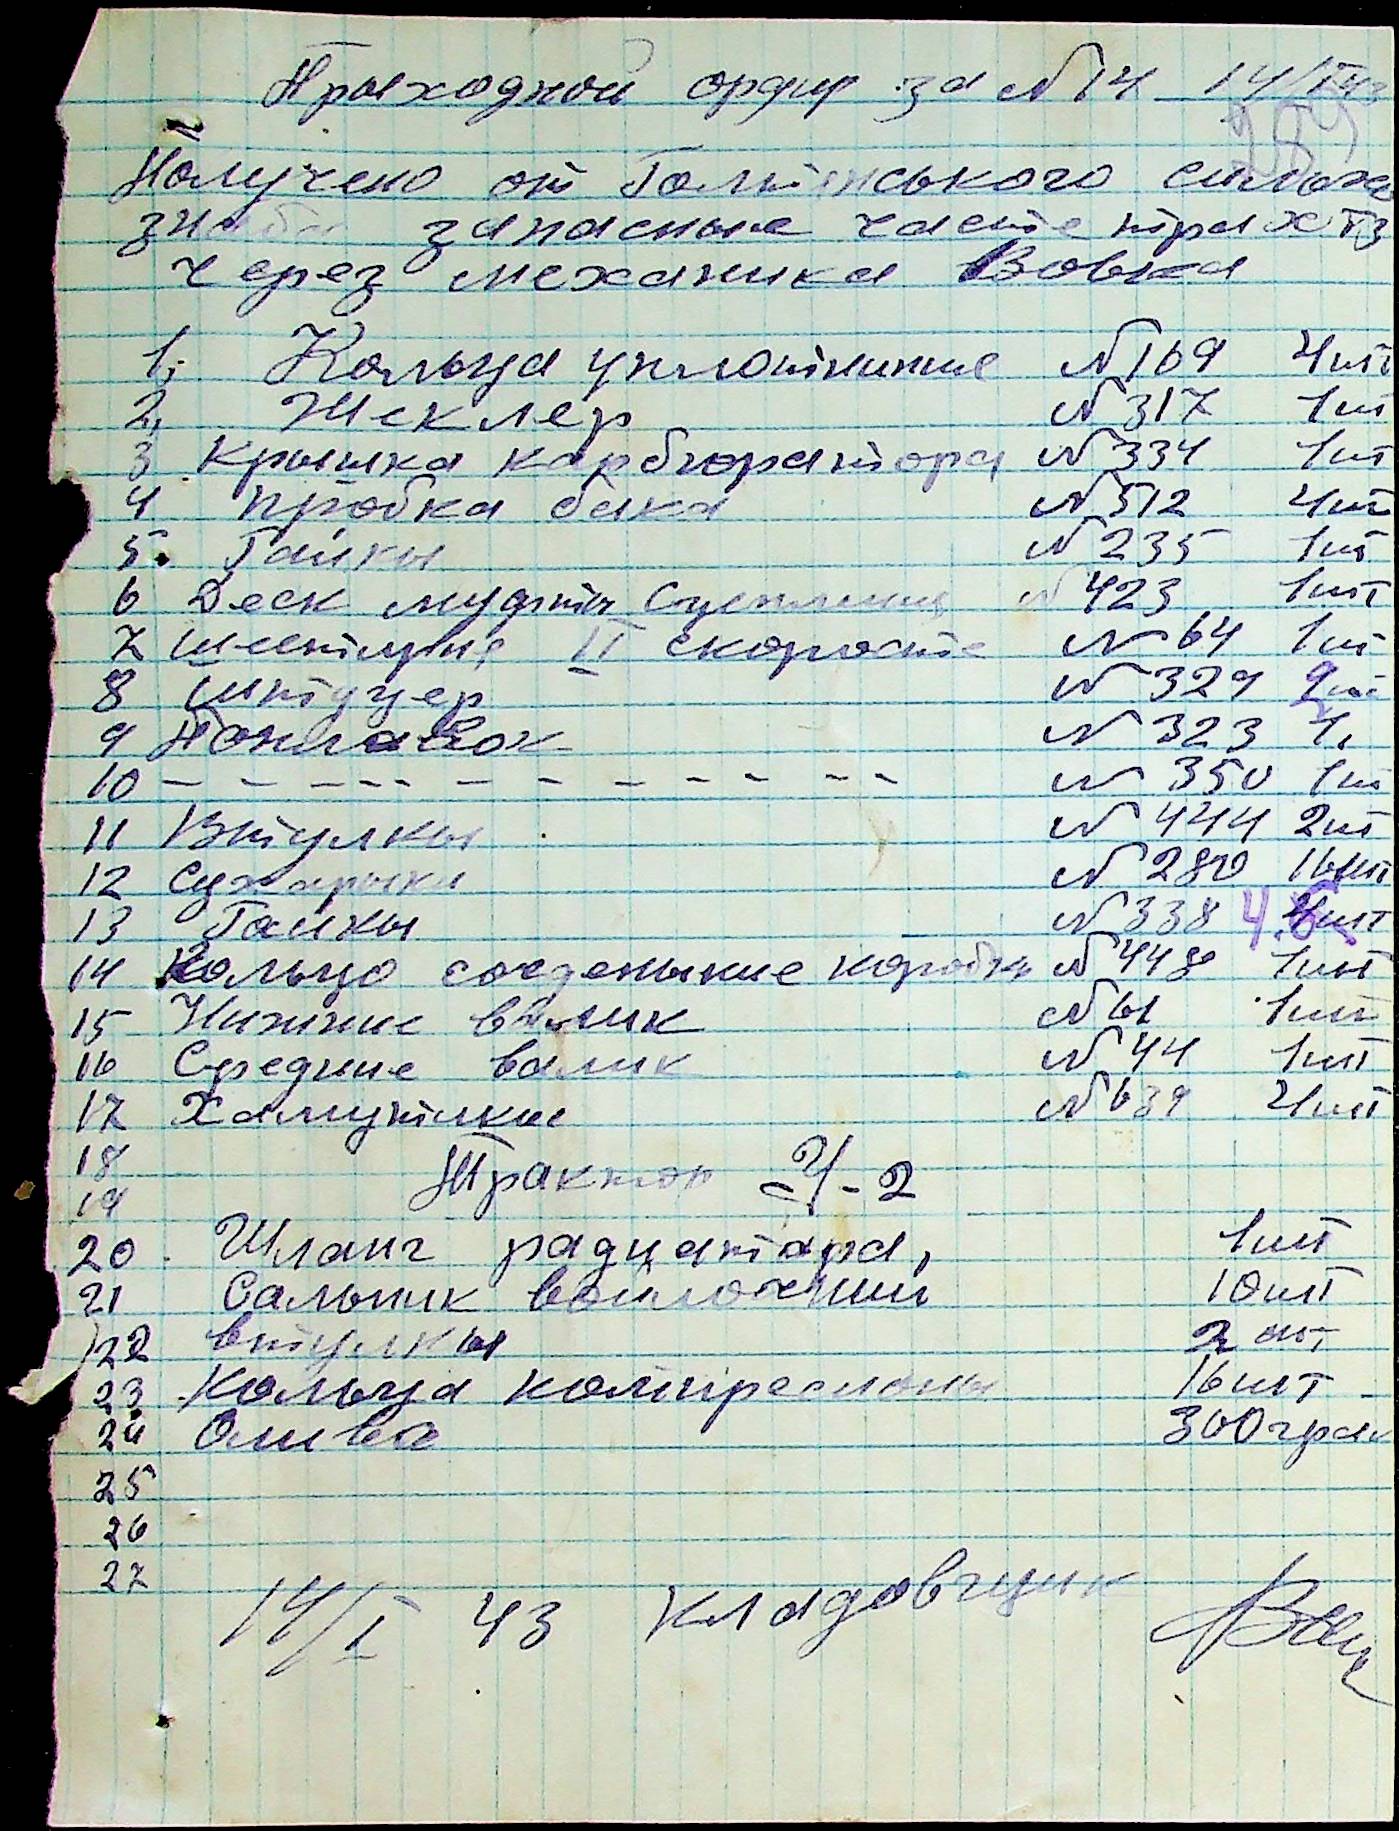 Прыходной ордир за №14 14/I 43
Получено от Голтянського сильхо
запасные части тра ХТЗ
через механика Вовка
1, Кольца уплотнитние №169 4шт
2, Жеклер №317 1шт
3 Крышка карбюратора №334 1шт
4 Пробка бака №512 4шт
5. Гайкы №235 1шт
6 Деск муфты Сцепление №423 1шт
7 шестирня II скорости №64 1шт
8 Штуцер №329 2шт
9 Поплавок №323 1,
10 – – – – – – – – – – – №350 1шт
11 Втулкы №444 2шт
12 Сухарыки №280 16шт
13 Гайкы №338 4шт
14 Кольцо соеденыние коробкы №448 1шт
15 Нижние валик №61 1шт
16 Средние валик №44 1шт
17 Хамутикы №639 4шт
18 Трактор У-2
19
20 Шланг радиатара, 1шт
21 Сальник войлочний 10шт
22 втулкы 2 шт
23 Кольца компресионы 16шт
24 Олива 300грам
25
26
27
14/I 43 Кладовщик